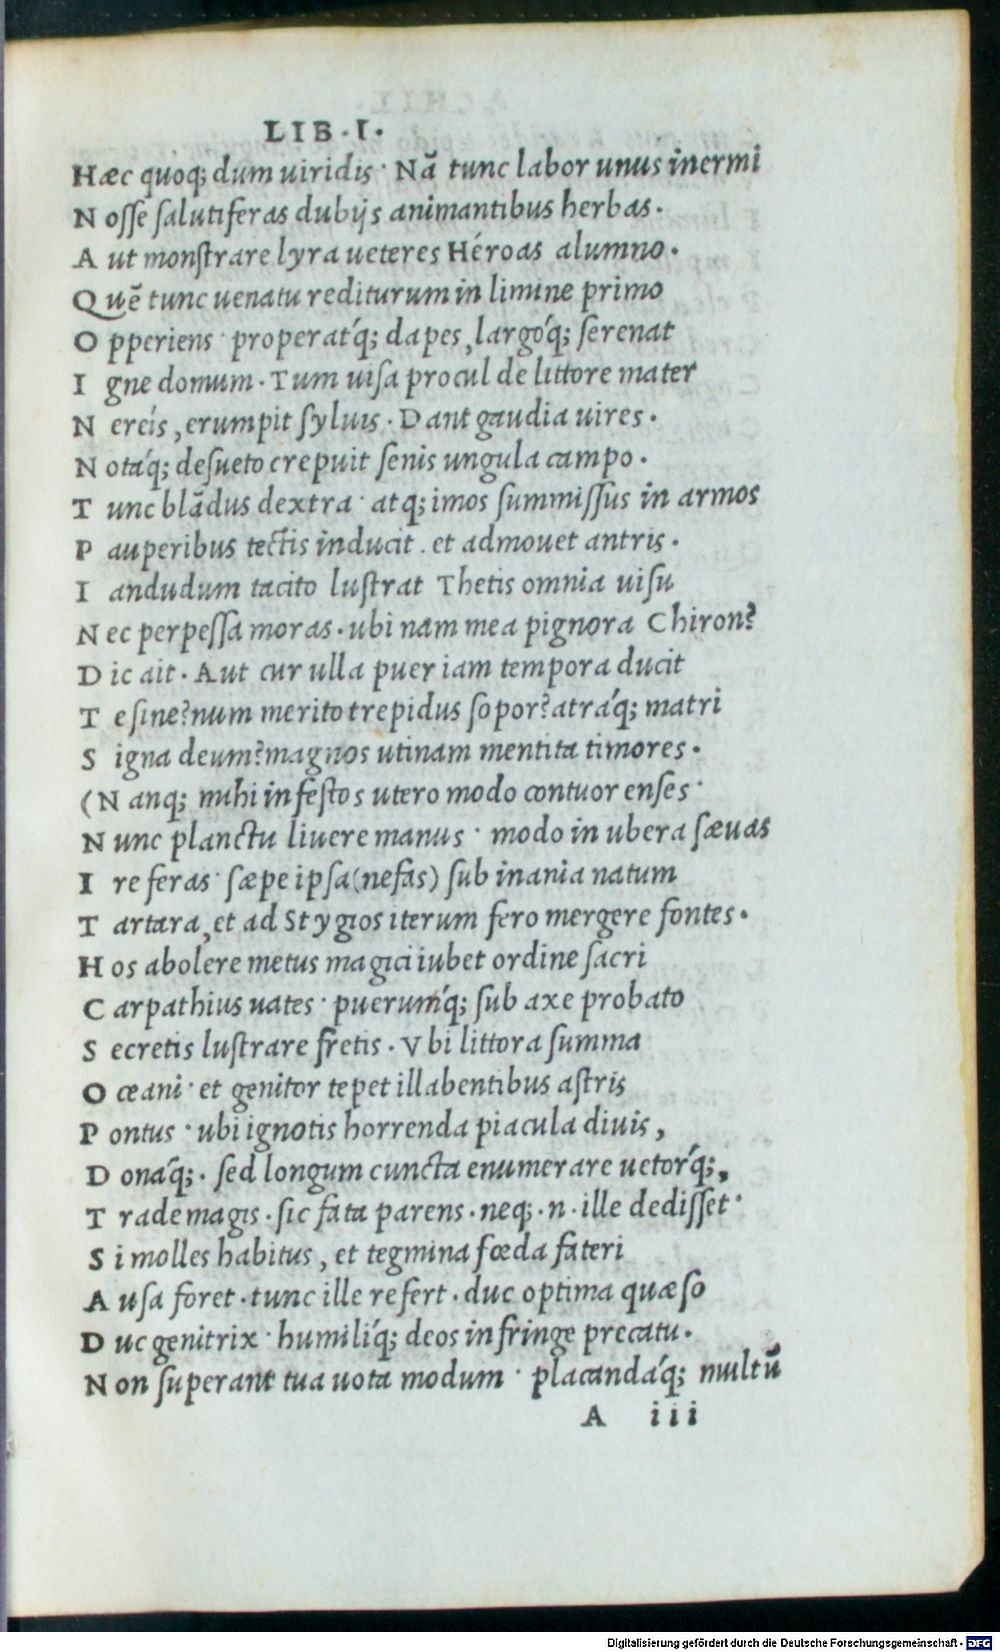 LIB·I·
Hæc quoq; dum uiridis· Nā tunc labor unus inermi
N osse salutiferas dubijs animantibus herbas·
A ut monstrare lyra ueteres Héroas alumno·
Q uē tunc uenatu rediturum in limine primo
O pperiens· properat'q; dapes, largo'q; serenat
I gne domum· Tum uisa procul de littore mater
N ereís, erumpit syluis· Dant gaudia uires·
N ota'q; desueto crepuit senis ungula campo·
T unc blādus dextra· atq; imos summissus in armos
P auperibus tectis inducit. et admouet antris·
I andudum tacito lustrat Thetis omnia uisu
N ec perpessa moras· ubi nam mea pignora Chiron?
D ic ait· Aut cur ulla puer iam tempora ducit
T e sine? num merito trepidus sopor? atra'q; matri
S igna deum? magnos utinam mentita timores·
(N anq; mihi infestos utero modo contuor enses·
N unc planctu liuere manus· modo in ubera sæuas
I re feras· sæpe ipsa (nefas) sub inania natum
T artara, et ad Stygios iterum fero mergere fontes·
H os abolere metus magici iubet ordine sacri
C arpathius uates· puerum'q; sub axe probato
S ecretis lustrare fretis· Vbi littora summa
O ceani· et genitor tepet illabentibus astris
P ontus· ubi ignotis horrenda piacula diuis,
D ona'q;· sed longum cuncta enumerare uetor'q;,
T rade magis· sic fata parens· neq;·n·ille dedisset·
S i molles habitus, et tegmina fœda fateri
A usa foret· tunc ille refert· duc optima quæso
D uc genitrix· humili'q; deos infringe precatu·
N on superant tua uota modum· placanda'q; multū
A iii
Digitalisierung gefördert durch die Deutsche Forschungsgemeinschaft · DFG